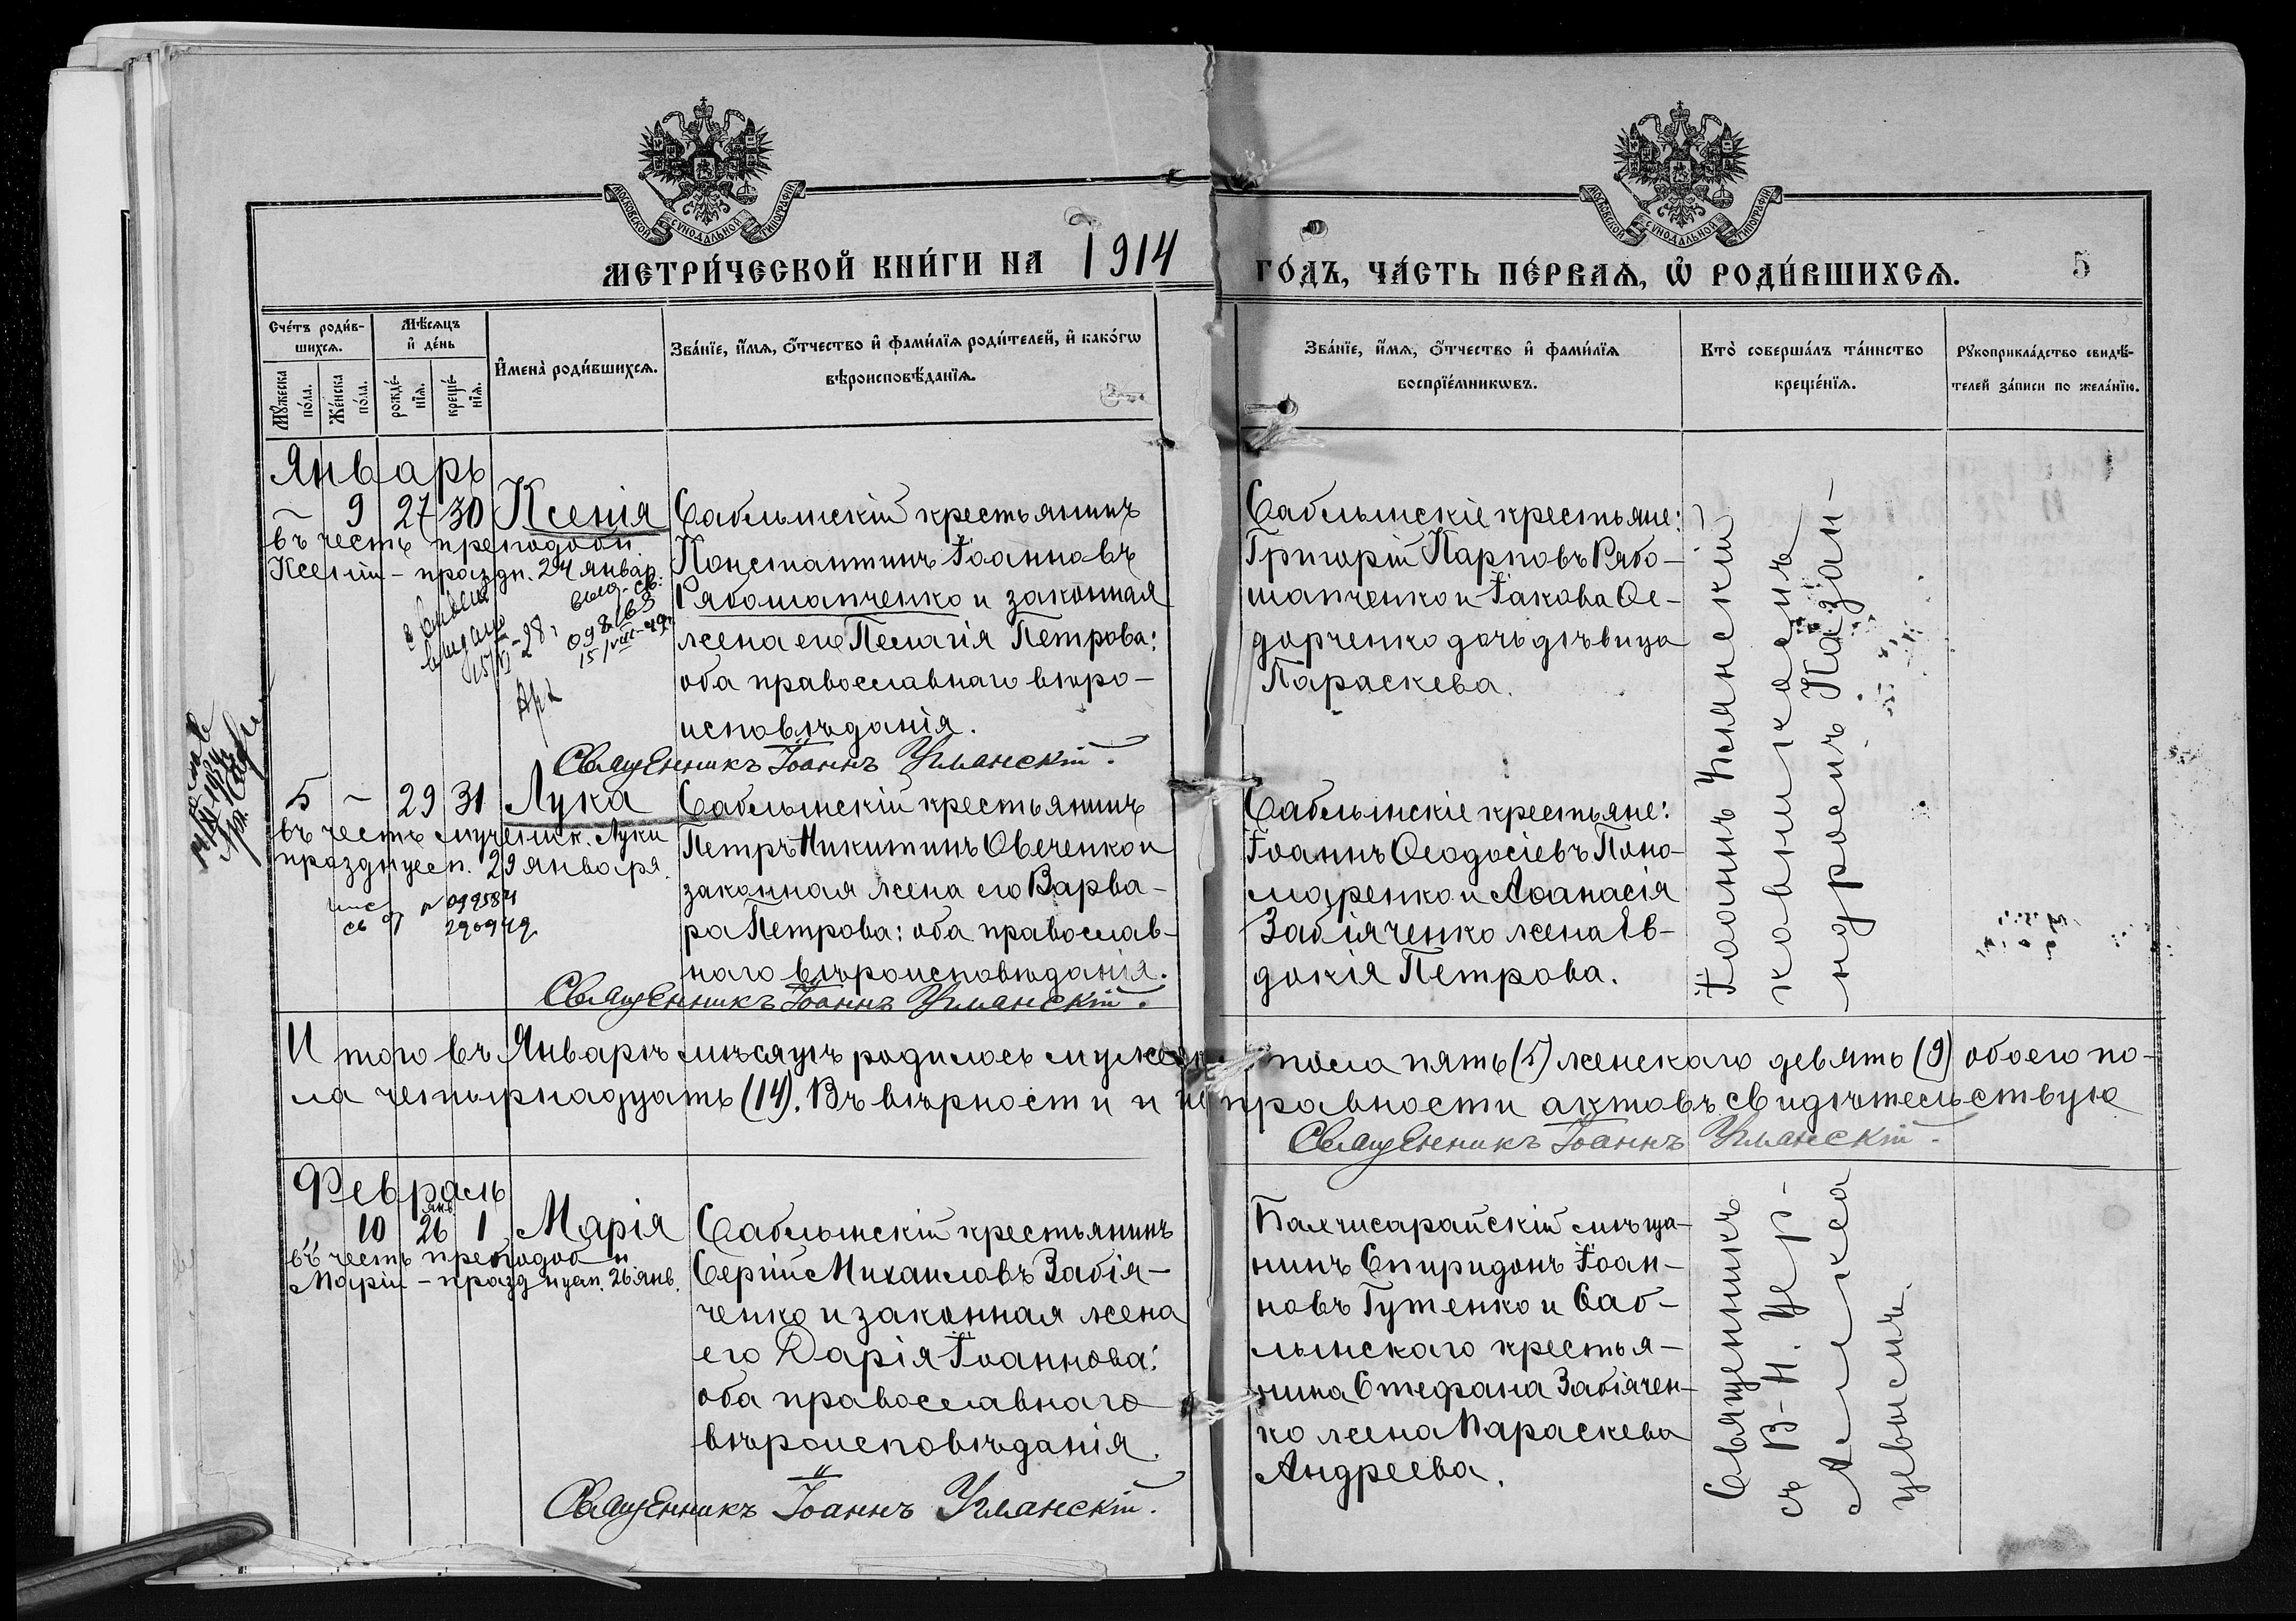 МОСКОВСКОЙ СѴНОДАЛЬНОЙ ТИПОГРАФІИ
МОСКОВСКОЙ СѴНОДАЛЬНОЙ ТИПОГРАФІИ
МЕТРИ́ЧЕСКОЙ КНИ́ГИ НА 1914
ГО́ДЪ, ЧА́СТЬ ПЕ́РВАѦ, Ѡ҆ РОДИ́ВШИХСѦ.
5
Сче́тъ роди́в-
шихсѧ.
Мѣ́сѧцъ
и҆ де́нь
И҆мена̀ роди́вшихсѧ.
Зва́нїе, и҆́мѧ, ѻ҆́тчество и҆ фами́лїѧ роди́телей, и҆ како́гѡ
вѣроисповѣ́данїѧ.
Мꙋ́жеска
по́ла.
Же́нска
по́ла.
рожде́-
нїѧ.
креще́-
нїѧ.
Зва́нїе, и҆́мѧ, ѻ҆́тчество и҆ фами́лїѧ
воспрїе́мникѡвъ.
Кто̀ соверша́лъ та́инство
креще́нїѧ.
Рꙋкоприкла́дство свидѣ́-
телей за́писи по жела́нїю.
Январь
~ 9 27 30 Ксенія
въ честь преподобн.
Ксеніи – праздн. 24 январ.
выдано
15/VI – 28 г
выд. св.
15/VIII–49
Саблынскій крестьянинъ
Константинъ Іоанновъ
Рябошапченко и законная
жена его Пелагія Петрова:
оба православнаго вѣро-
исповѣданія.
Священникъ Іоаннъ Уманскій.
Саблынскіе крестьяне:
Григорій Карповъ Рябо-
шапченко и Іакова Ѳе-
дорченко дочь дѣвица
Параскева.
5 ~ 29 31 Лука
въ честь мученик. Луки
празднуем. 29 января.
№ 099584
290949
Саблынскій крестьянинъ
Петръ Никитинъ Овеченко и
законная жена его Варва-
ра Петрова: оба православ-
наго вѣроисповѣданія.
Священникъ Іоаннъ Уманскій.
Саблынскіе крестьяне:
Іоаннъ Ѳеодосіевъ Поно-
маренко и Аѳанасія
Забіяченко жена Ев-
докія Петрова.
Іоаннъ Уманскій
псаломщикомъ
Казан-
И того въ Январѣ мѣсяцѣ родилось мужеск пола пять (5) женскаго девять (9) обоего по-
ла четырнадцать (14). Въ вѣрности и исправности актовъ свидѣтельствую
Священникъ Іоаннъ Уманскій.
Февраль
янв.
10 26 1 Марія
въ честь преподобн
Маріи – празднуем. 26 янв.
Саблынскій крестьянинъ
Сергій Михаиловъ Забія-
ченко и законная жена
его Дарія Іоаннова:
оба православнаго
вѣроисповѣданія.
Священникъ Іоаннъ Уманскій.
Бахчисарайскій мѣща-
нинъ Спиридонъ Іоан-
новъ Гутенко и Саб-
лынскаго крестья-
нина Стефана Забіячен-
ко жена Параскева
Андреева.
Священникъ